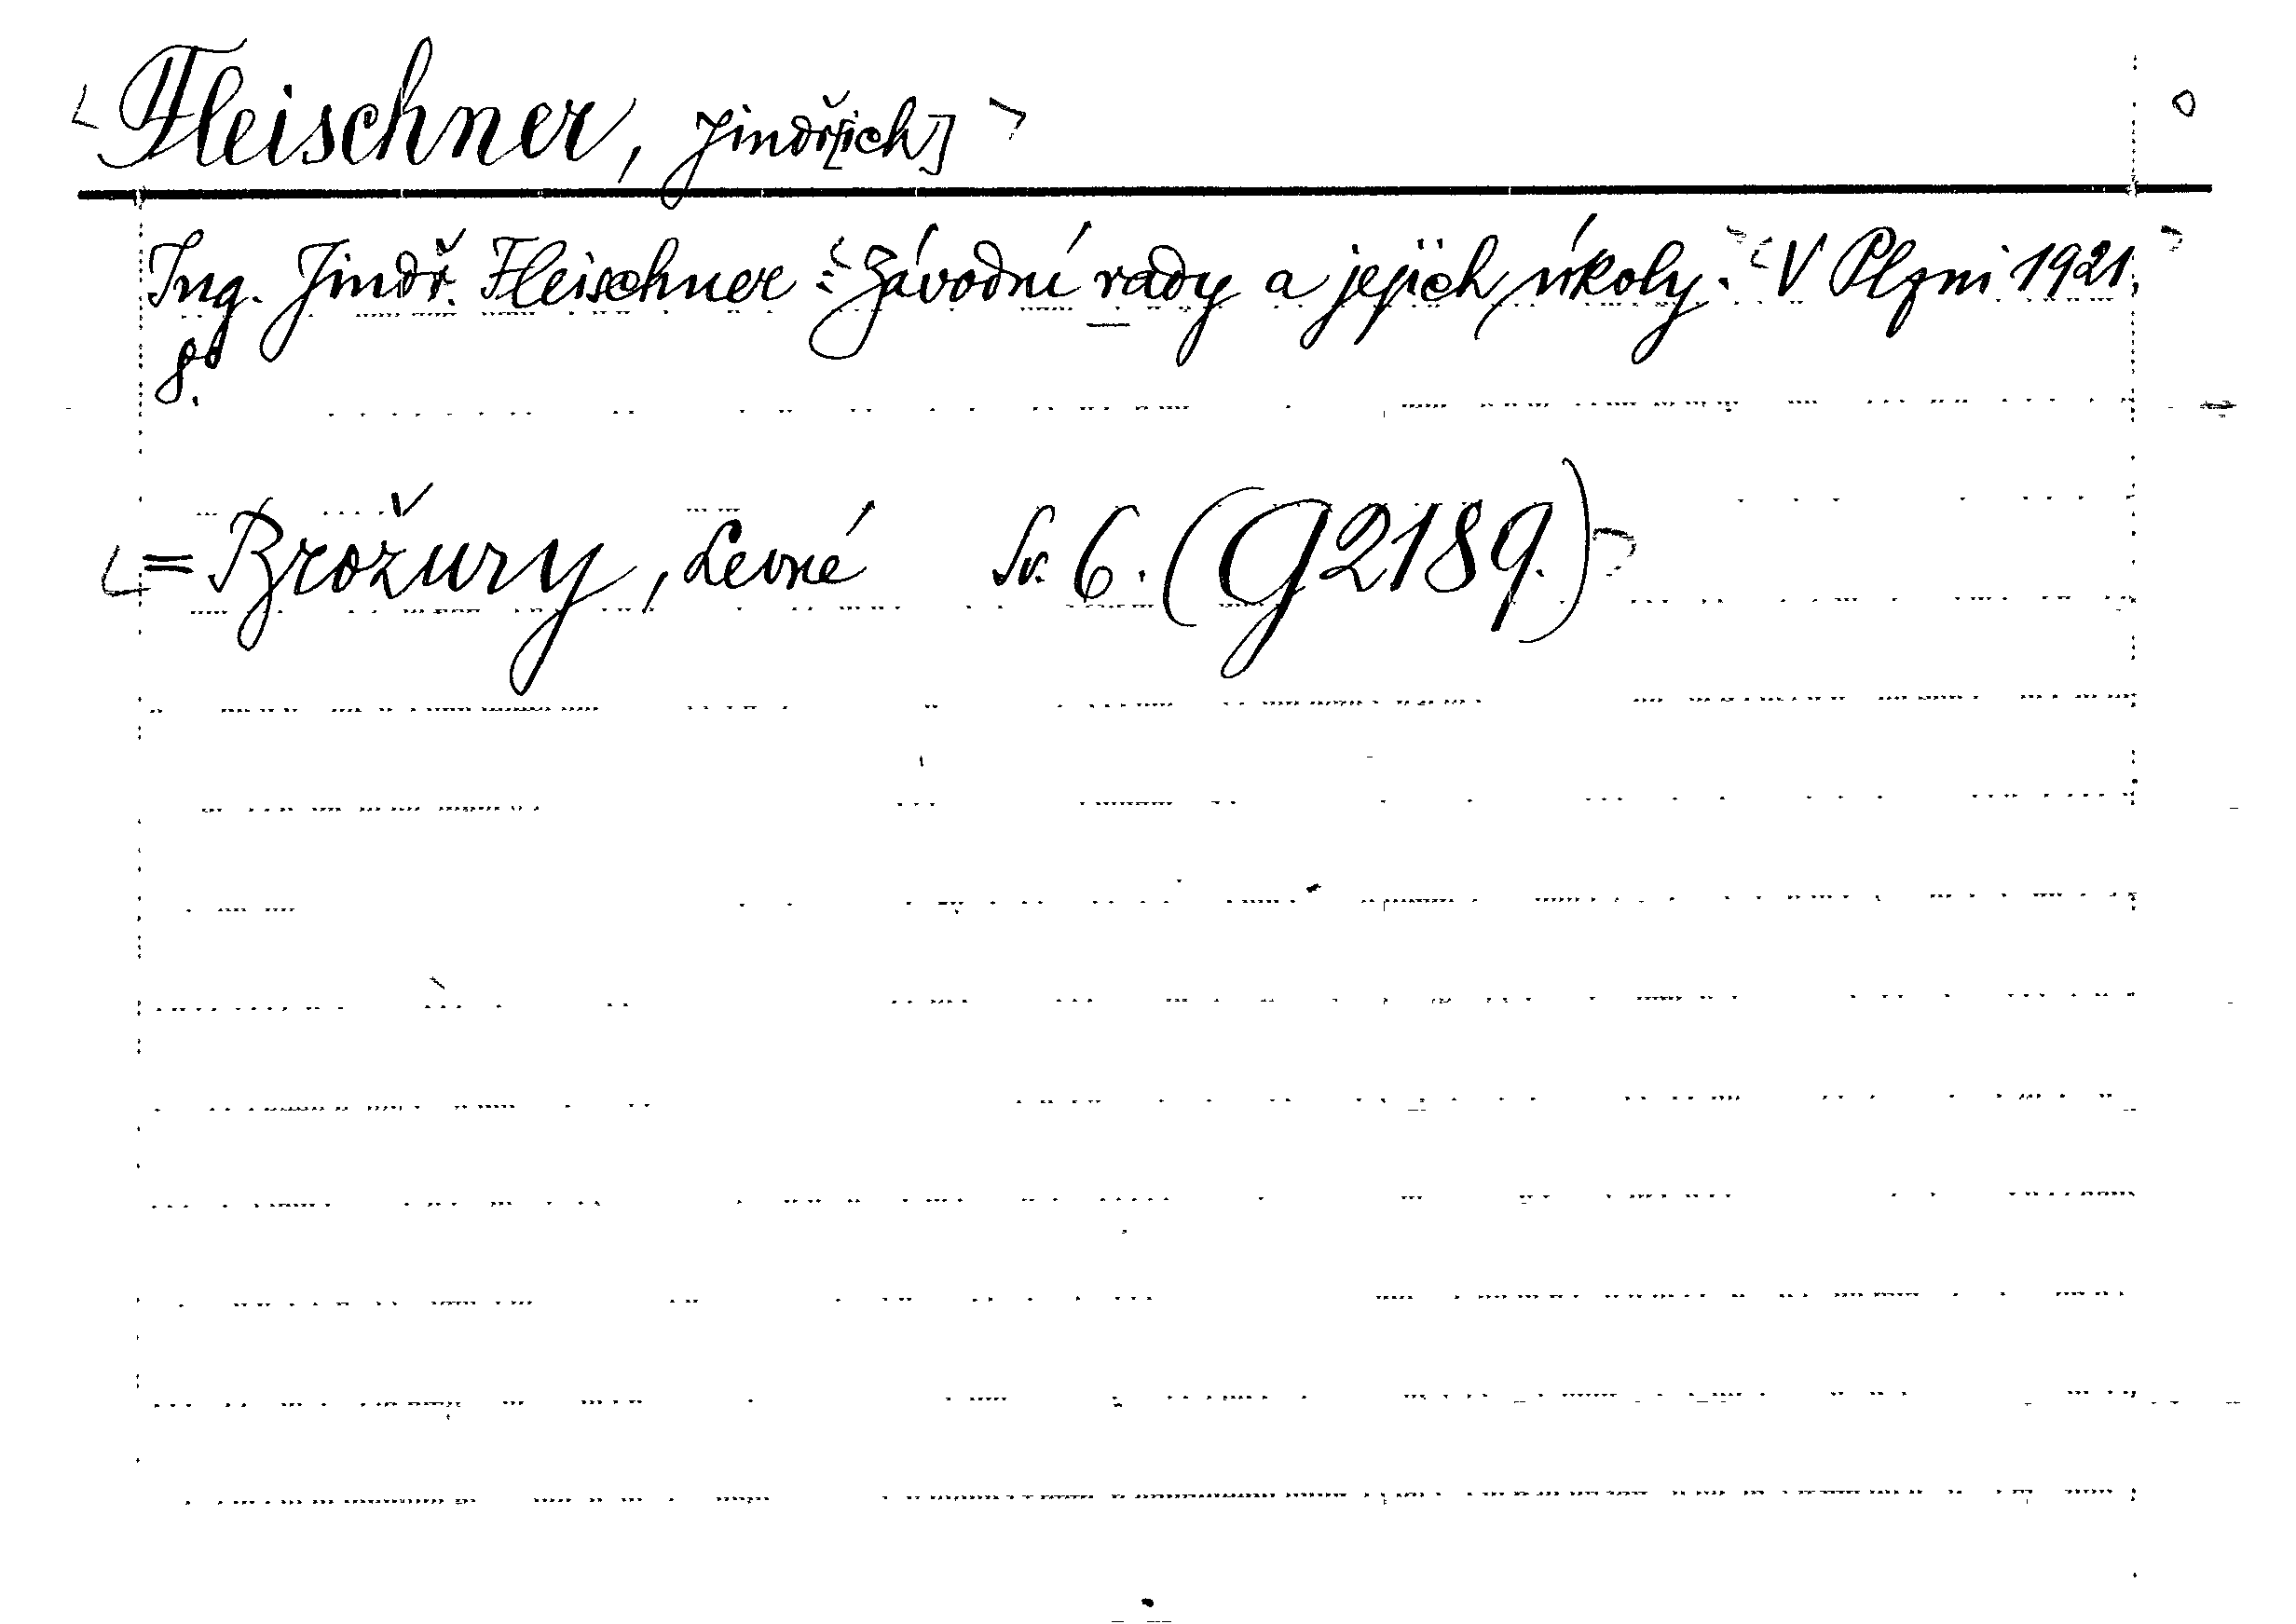 Fleischner, Jindř[ich]
Ing. Jindř. Fleischner: Závodní rady a jejich úkoly. V Plzni 1921.
8°.
= Brožury, Levné Sv. 6. (G 2189.)